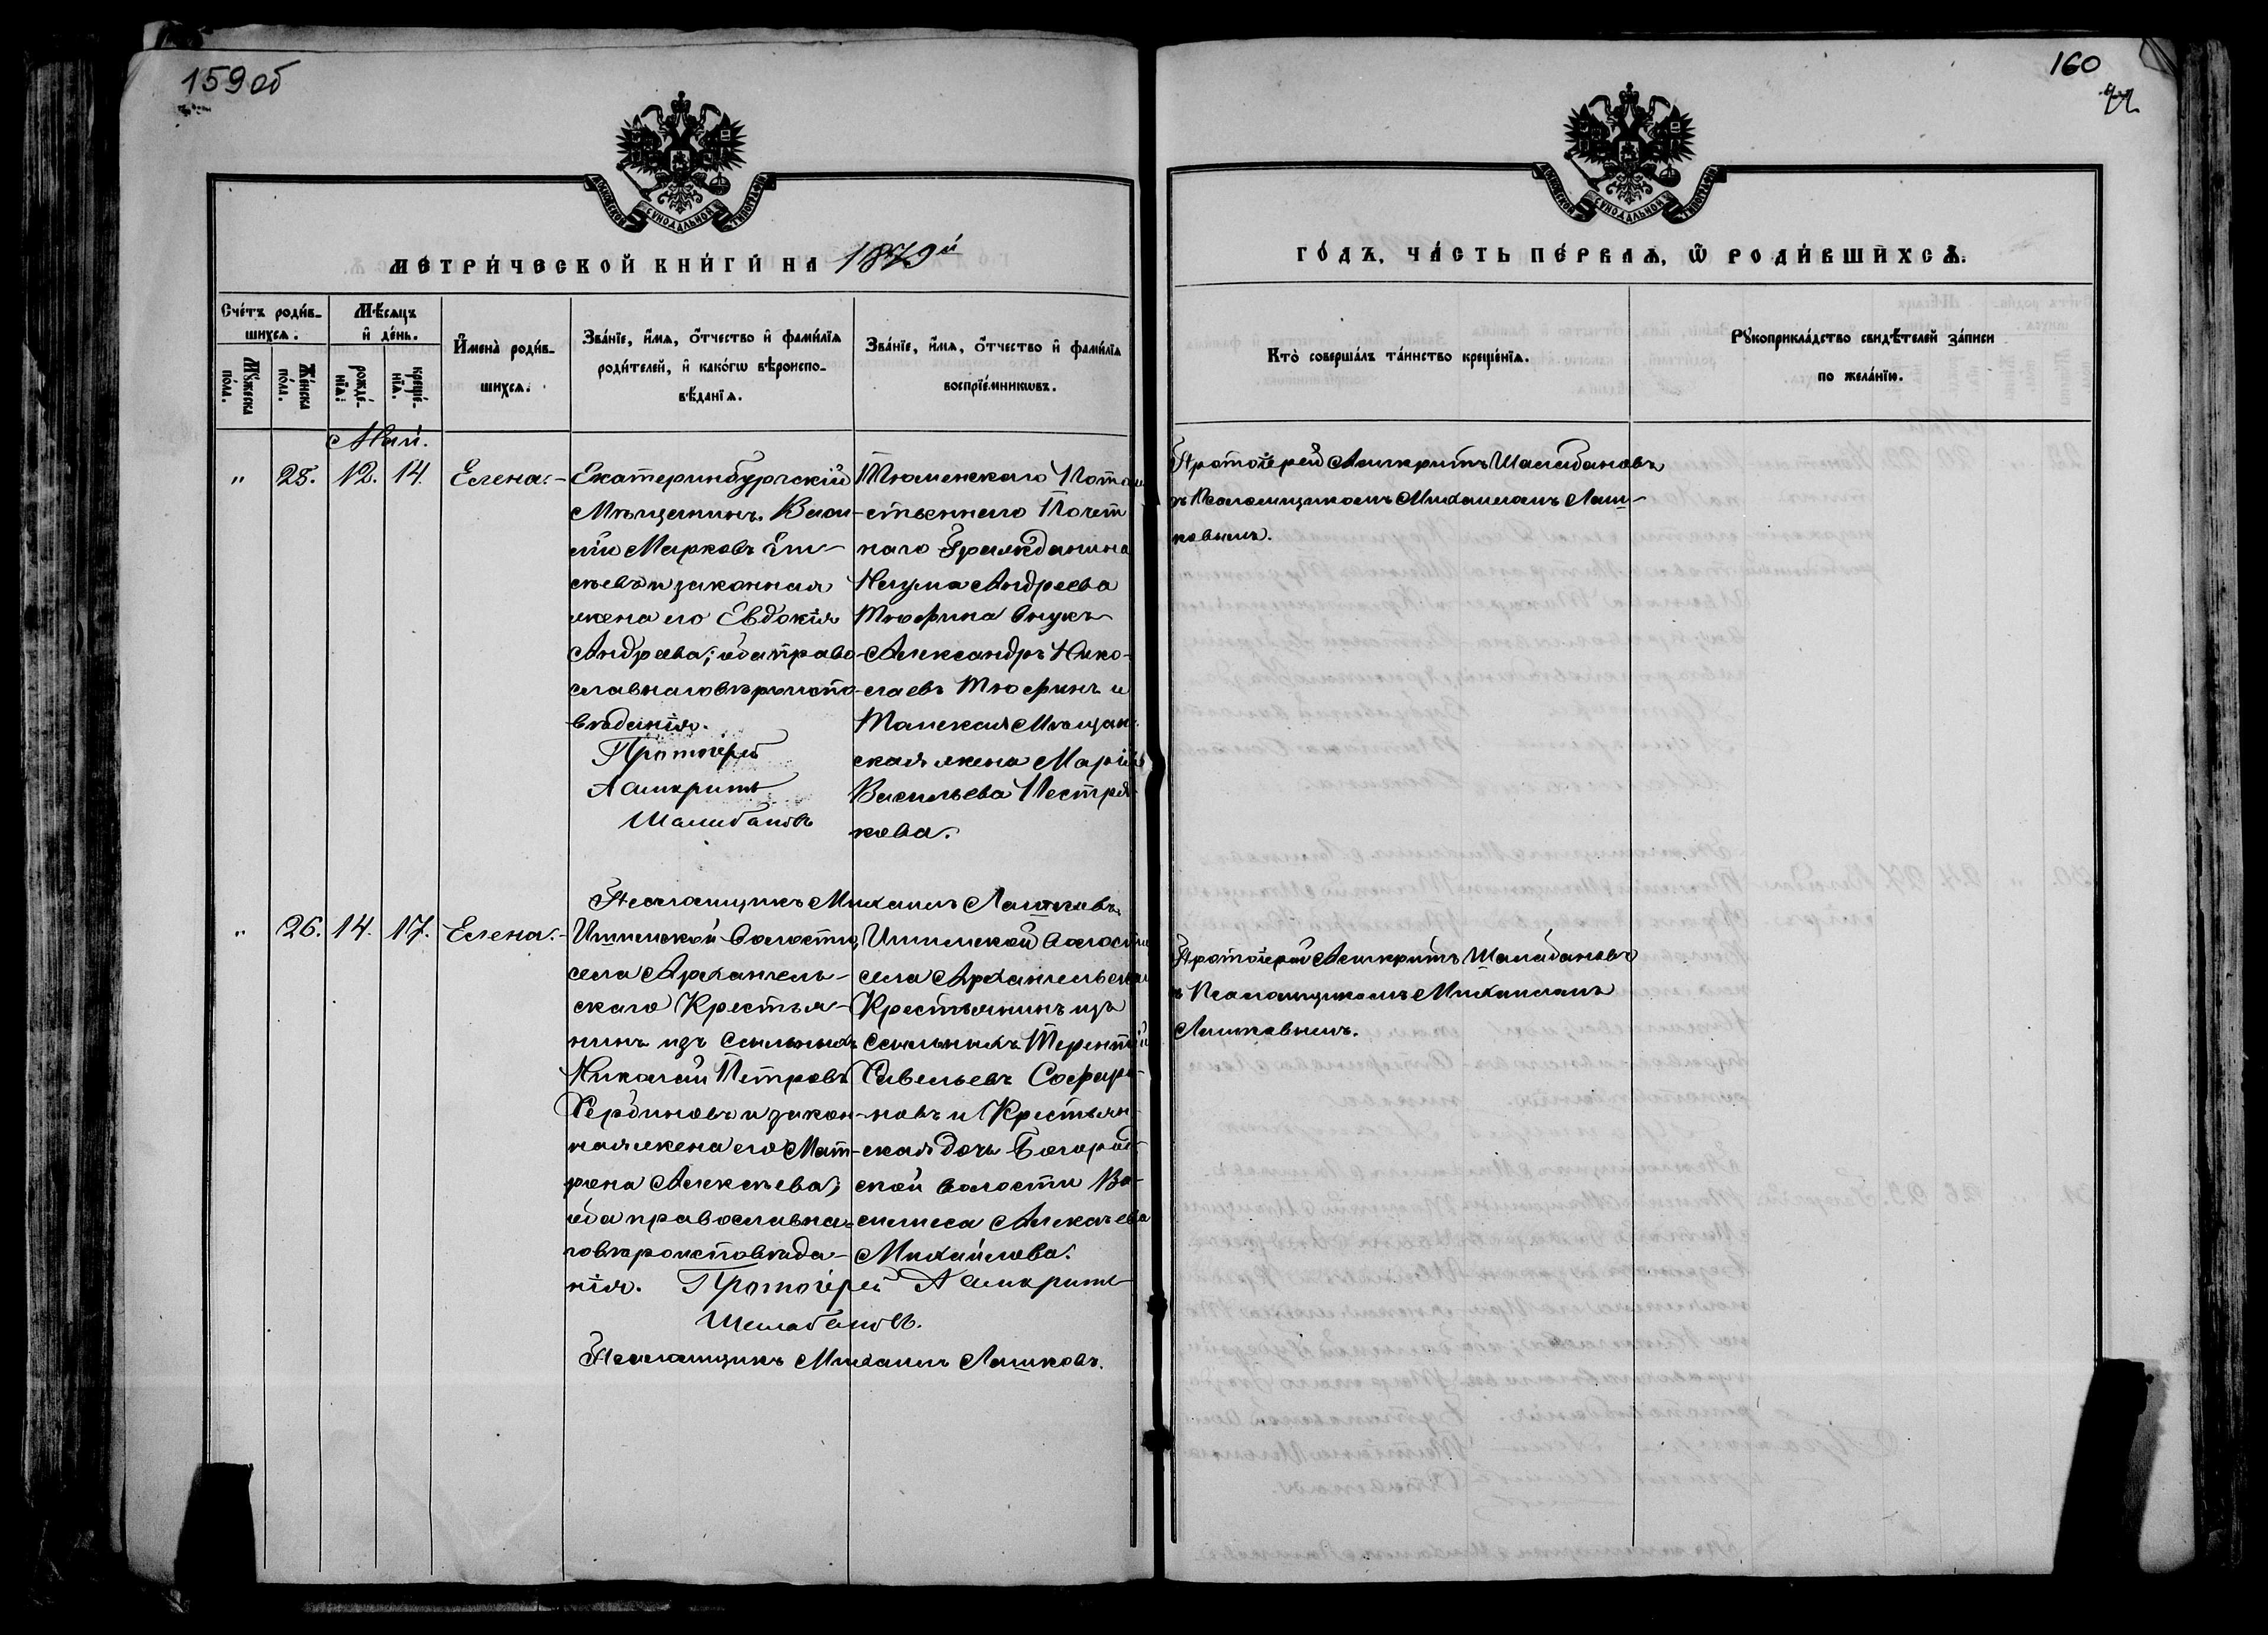 159 об
160
МОСКОВСКОЙ СѴНОДАЛЬНОЙ ТИПОГРАФІИ
МОСКОВСКОЙ СѴНОДАЛЬНОЙ ТИПОГРАФІИ
МЕТРИ́ЧЕСКОЙ КНИ́ГИ НА 1879й
ГО́ДЪ, ЧА́СТЬ ПЕ́РВАѦ, Ѽ РОДИ́ВШИХСѦ.
Сче́тъ роди́в-
шихсѧ.
Мꙋ́жеска
по́ла.
Же́нска
по́ла.
Мѣ́сѧцъ
и҆ де́нь.
рожде́-
нїѧ:
креще́-
нїѧ.
И҆мена̀ роди́в-
шихсѧ.
Зва́нїе, и҆́мѧ, ѻ҆́тчество и҆ фами́лїѧ
роди́телей, и҆ како́гѡ вѣроиспо-
вѣ́данїѧ.
Зва́нїе, и҆́мѧ, ѻ҆́тчество и҆ фами́лїѧ
воспрїе́мникѡвъ.
Кто̀ соверша́лъ та́инство креще́нїѧ.
Рꙋкоприкла́дство свидѣ́телей за́писи
по жела́нїю.
Май.
" 25. 12. 14. Елена.-
Екатеринбургскій
Мѣщанинъ Васи-
лій Марковъ
сѣевъ и законная
жена его Евдокія
Андреева; оба право-
славнаго вѣроиспо-
вѣданія.
Протоіерей
Асинкритъ
Шалабановъ
Псаломщикъ Михаилъ Лашковъ.
Тюменскаго Потом
ственнаго Почет
наго Гражданина
Наума Андреева
Тюфина внукъ
Александръ Нико-
лаевъ Тюфинъ и
Томская Мѣщан-
ская жена Марія
Васильева Пестря-
кова.
Протоіерей Асинкритъ Шалабановъ
съ Псаломщикомъ Михаиломъ Лаш-
ковымъ.
" 26. 14. 17. Елена.-
Ишимской волости,
села Архангель-
скаго Крестья-
нинъ изъ ссыльныхъ
Николай Петровъ
Сердиновъ и закон-
ная жена его Мат-
рона Алексѣева;
оба православна-
го вѣроисповѣда-
нія. Протоіерей Асинкритъ
Шалабановъ.
Псаломщикъ Михаилъ Лашковъ.
Ишимской волости
села Архангельскаго
Крестьянинъ изъ
ссыльныхъ Терентій
Савельевъ Софро-
новъ и Крестьян-
ская дочь Богород-
ской волости Ва-
силиса Алексѣева
Михайлова.
Протоіерей Асинкритъ Шалабановъ
съ Псаломщикомъ Михаиломъ
Лашковымъ.